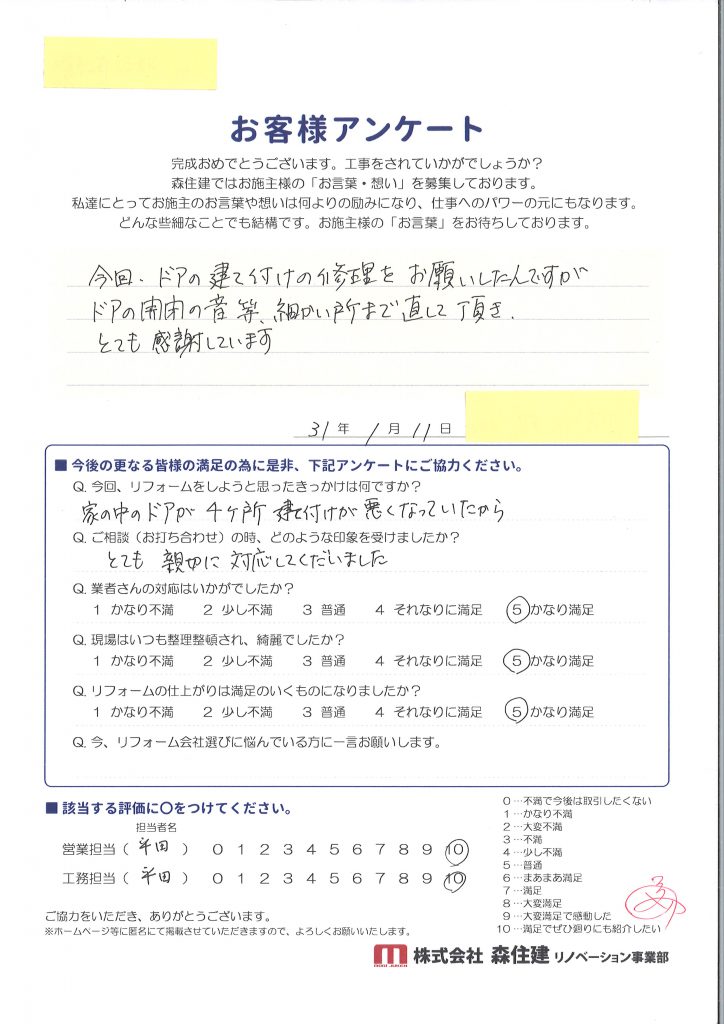 お客様アンケート
完成おめでとうございます。工事をされていかがでしょうか？
森住建ではお施主様の「お言葉・想い」を募集しております。
私達にとってお施主のお言葉や想いは何よりの励みになり、仕事へのパワーの元にもなります。
どんな些細なことでも結構です。お施主様の「お言葉」をお待ちしております。
今回、ドアの建て付けの修理をお願いしたんですが
ドアの開閉の音等、細かい所まで直して頂き、
とても感謝しています
31年 1月 11日
■ 今後の更なる皆様の満足の為に是非、下記アンケートにご協力ください。
Q. 今回、リフォームをしようと思ったきっかけは何ですか？
家の中のドアが4ヶ所建て付けが悪くなっていたから
Q. ご相談（お打ち合わせ）の時、どのような印象を受けましたか？
とても親切に対応してくだいました
Q. 業者さんの対応はいかがでしたか？
1 かなり不満 2 少し不満 3 普通 4 それなりに満足 5 かなり満足
Q. 現場はいつも整理整頓され、綺麗でしたか？
1 かなり不満 2 少し不満 3 普通 4 それなりに満足 5 かなり満足
Q. リフォームの仕上がりは満足のいくものになりましたか？
1 かなり不満 2 少し不満 3 普通 4 それなりに満足 5 かなり満足
Q. 今、リフォーム会社選びに悩んでいる方に一言お願いします。
■ 該当する評価に〇をつけてください。
担当者名
営業担当（ 平田 ） 0 1 2 3 4 5 6 7 8 9 10
工務担当（ 平田 ） 0 1 2 3 4 5 6 7 8 9 10
0…不満で今後は取引したくない
1…かなり不満
2…大変不満
3…不満
4…少し不満
5…普通
6…まあまあ満足
7…満足
8…大変満足
9…大変満足で感動した
10…満足でぜひ廻りにも紹介したい
ご協力をいただき、ありがとうございます。
※ホームページ等に匿名にて掲載させていただきますので、よろしくお願いいたします。
株式会社 森住建 リノベーション事業部